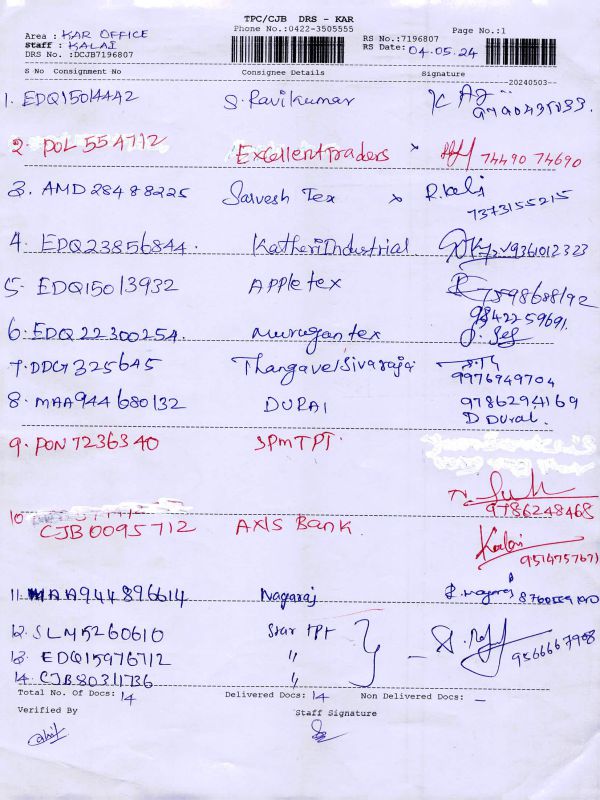 TPC/CJB DRS - KAR
Phone No.:0422-3505555
Page No.:1
Area : KAR OFFICE
RS No.:7196807
Staff : KALAI
RS Date: 04.05.24
DRS No. :DCJB7196807
S No Consignment No Consignee Details Signature
20240503--
1. EDQ15014442 S. Ravikumar
2. POL 554712 Excellent Traders × 74490 74690
3. AMD 28488225 Sarvesh Tex × 7373155215
4. EDQ23856844. Katheri Industrial. 9361012323
5. EDQ15013932 Apple tex 7598688192
6. EDQ 22300254. Murugan tex 9842259691.
7. DDG325645 Thangavel Sivaraja 9976949704
8. MAA944680132 DURAI 9786294169
D Durai.
9. PON 7236340 SPM TPT.
9786248468
10 CJB0095712 AXIS Bank. 9514757671
11. MAA944896614 Nagaraj
12. SLM5260610 Star TPT
13. EDQ15976712 " 9566667908
14. CJB80311736 "
Total No. Of Docs: 14 Delivered Docs: 14 Non Delivered Docs: -
Verified By Staff Signature